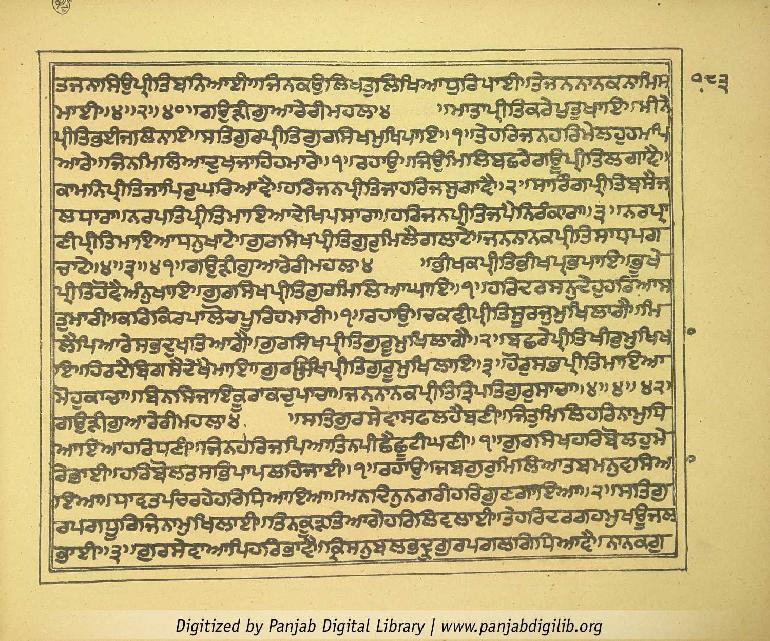 ੧੮੩
ਤਜਨਾਸਿਉਪ੍ਰੀਤਿਬਾਨਿਆਈ॥ਜਿਨਕਉਲਿਖਤੁਲਿਖਿਆਧੁਰਿਪਾਈ॥ਤੇਜਨਨਾਨਕਨਾਮਿਸ
ਮਾਈ॥੪॥੨॥੪੦॥ਗਉੜੀਗੁਆਰੇਰੀਮਹਲਾ੪ ॥ਮਾਤਾਪ੍ਰੀਤਿਕਰੇਪੁਤੁਖਾਇ॥ਮੀਨੇ
ਪ੍ਰੀਤਿਭਈਜਲਿਨਾਇ॥ਸਤਿਗੁਰਪ੍ਰੀਤਿਗੁਰਸਿਖਮੁਖਿਪਾਇ॥੧॥ਤੇਹਰਿਜਨਹਰਿਮੇਲਹੁਹਮਪਿ
ਆਰੇ॥ਜਿਨਮਿਲਿਆਦੁਖਜਾਹਿਹਮਾਰੇ॥੧॥ਰਹਾਉ॥ਜਿਉਮਿਲਿਬਛਰੇਗਊਪ੍ਰੀਤਿਲਗਾਵੈ॥
ਕਾਮਨਿਪ੍ਰੀਤਿਜਾਪਿਰੁਘਰਿਆਵੈ॥ਹਰਿਜਨਪ੍ਰੀਤਿਜਾਹਰਿਜਸੁਗਾਵੈ॥੨॥ਸਾਰੰਗਪ੍ਰੀਤਿਬਸੈਜ
ਲਧਾਰਾ॥ਨਰਪਤਿਪ੍ਰੀਤਿਮਾਇਆਦੇਖਿਪਸਾਰਾ॥ਹਰਿਜਨਪ੍ਰੀਤਿਜਪੈਨਿਰੰਕਾਰਾ॥੩॥ਨਰਪ੍ਰਾ
ਣੀਪ੍ਰੀਤਿਮਾਇਆਧਨੁਖਾਟੇ॥ਗੁਰਸਿਖਪ੍ਰੀਤਿਗੁਰੁਮਿਲੈਗਲਾਟੇ॥ਜਨਨਾਨਕਪ੍ਰੀਤਿਸਾਧਪਗ
ਚਾਟੇ॥੪॥੩॥੪੧॥ਗਉੜੀਗੁਆਰੇਰੀਮਹਲਾ੪ ॥ਭੀਖਕਪ੍ਰੀਤਿਭੀਖਪ੍ਰਭਪਾਇ॥ਭੂਖੇ
ਪ੍ਰੀਤਿਹੋਵੈਅੰਨੁਖਾਇ॥ਗੁਰਸਿਖਪ੍ਰੀਤਿਗੁਰਮਿਲਿਆਘਾਇ॥੧॥ਹਰਿਦਰਸਨੁਦੇਹੁਹਰਿਆਸ
ਤੁਮਾਰੀ॥ਕਰਿਕਿਰਪਾਲੋਚਪੂਰਿਹਮਾਰੀ॥੧॥ਰਹਾਉ॥ਚਕਵੀਪ੍ਰੀਤਿਸੂਰਜੁਮੁਖਿਲਾਗੈ॥ਮਿ
ਲੈਪਿਆਰੇਸਭਦੁਖਤਿਆਗੈ॥ਗੁਰਸਿਖਪ੍ਰੀਤਿਗੁਰੂਮੁਖਿਲਾਗੈ॥੨॥ਬਛਰੇਪ੍ਰੀਤਿਖੀਰੁਮੁਖਿਖ
ਾਇ॥ਹਿਰਦੈਬਿਗਸੈਦੇਖੈਮਾਇ॥ਗੁਰਸਿਖਪ੍ਰੀਤਿਗੁਰੂਮੁਖਿਲਾਇ॥੩॥ਹੋਰੁਸਭਪ੍ਰੀਤਿਮਾਇਆ
ਮੋਹੁਕਾਚਾ॥ਬਿਨਸਿਜਾਇਕੂਰਾਕਚੁਪਾਚਾ॥ਜਨਨਾਨਕਪ੍ਰੀਤਿਤ੍ਰਿਪਤਿਗੁਰੁਸਾਚਾ॥੪॥੪॥੪੨॥
ਗਉੜੀਗੁਆਰੇਰੀਮਹਲਾ੪ ॥ਸਤਿਗੁਰਸੇਵਾਸਫਲਹੈਬਣੀ॥ਜਿਤੁਮਿਲਿਹਰਿਨਾਮੁਧਿ
ਆਇਆਹਰਿਧਣੀ॥ਜਿਨਹਰਿਜਪਿਆਤਿਨਪੀਛੈਛੂਟੀਘਣੀ॥੧॥ਗੁਰਸਿਖਹਰਿਬੋਲਹੁਮੇ
ਰੇਭਾਈ॥ਹਰਿਬੋਲਤਸਭਪਾਪਲਹਿਜਾਈ॥੧॥ਰਹਾਉ॥ਜਬਗੁਰੁਮਿਲਿਆਤਬਮਨੁਵਸਿਆ
ਇਆ॥ਧਾਵਤਪੰਚਰਹੇਹਰਿਧਿਆਇਆ॥ਅਨਦਿਨੁਨਗਰੀਹਰਿਗੁਣਗਾਇਆ॥੨॥ਸਤਿਗੁ
ਰਪਗਧੂਰਿਜਿਨਾਮੁਖਿਲਾਈ॥ਤਿਨਕੂੜਤਿਆਗੇਹਰਿਲਿਵਲਾਈ॥ਤੇਹਰਿਦਰਗਹਮੁਖਊਜਲ
ਭਾਈ॥੩॥ਗੁਰਸੇਵਾਆਪਿਹਰਿਭਾਵੈ॥ਕ੍ਰਿਸਨੁਬਲਭਦ੍ਰੁਗੁਰਪਗਲਗਿਧਿਆਵੈ॥ਨਾਨਕਗੁ
Digitized by Panjab Digital Library | www.panjabdigilib.org